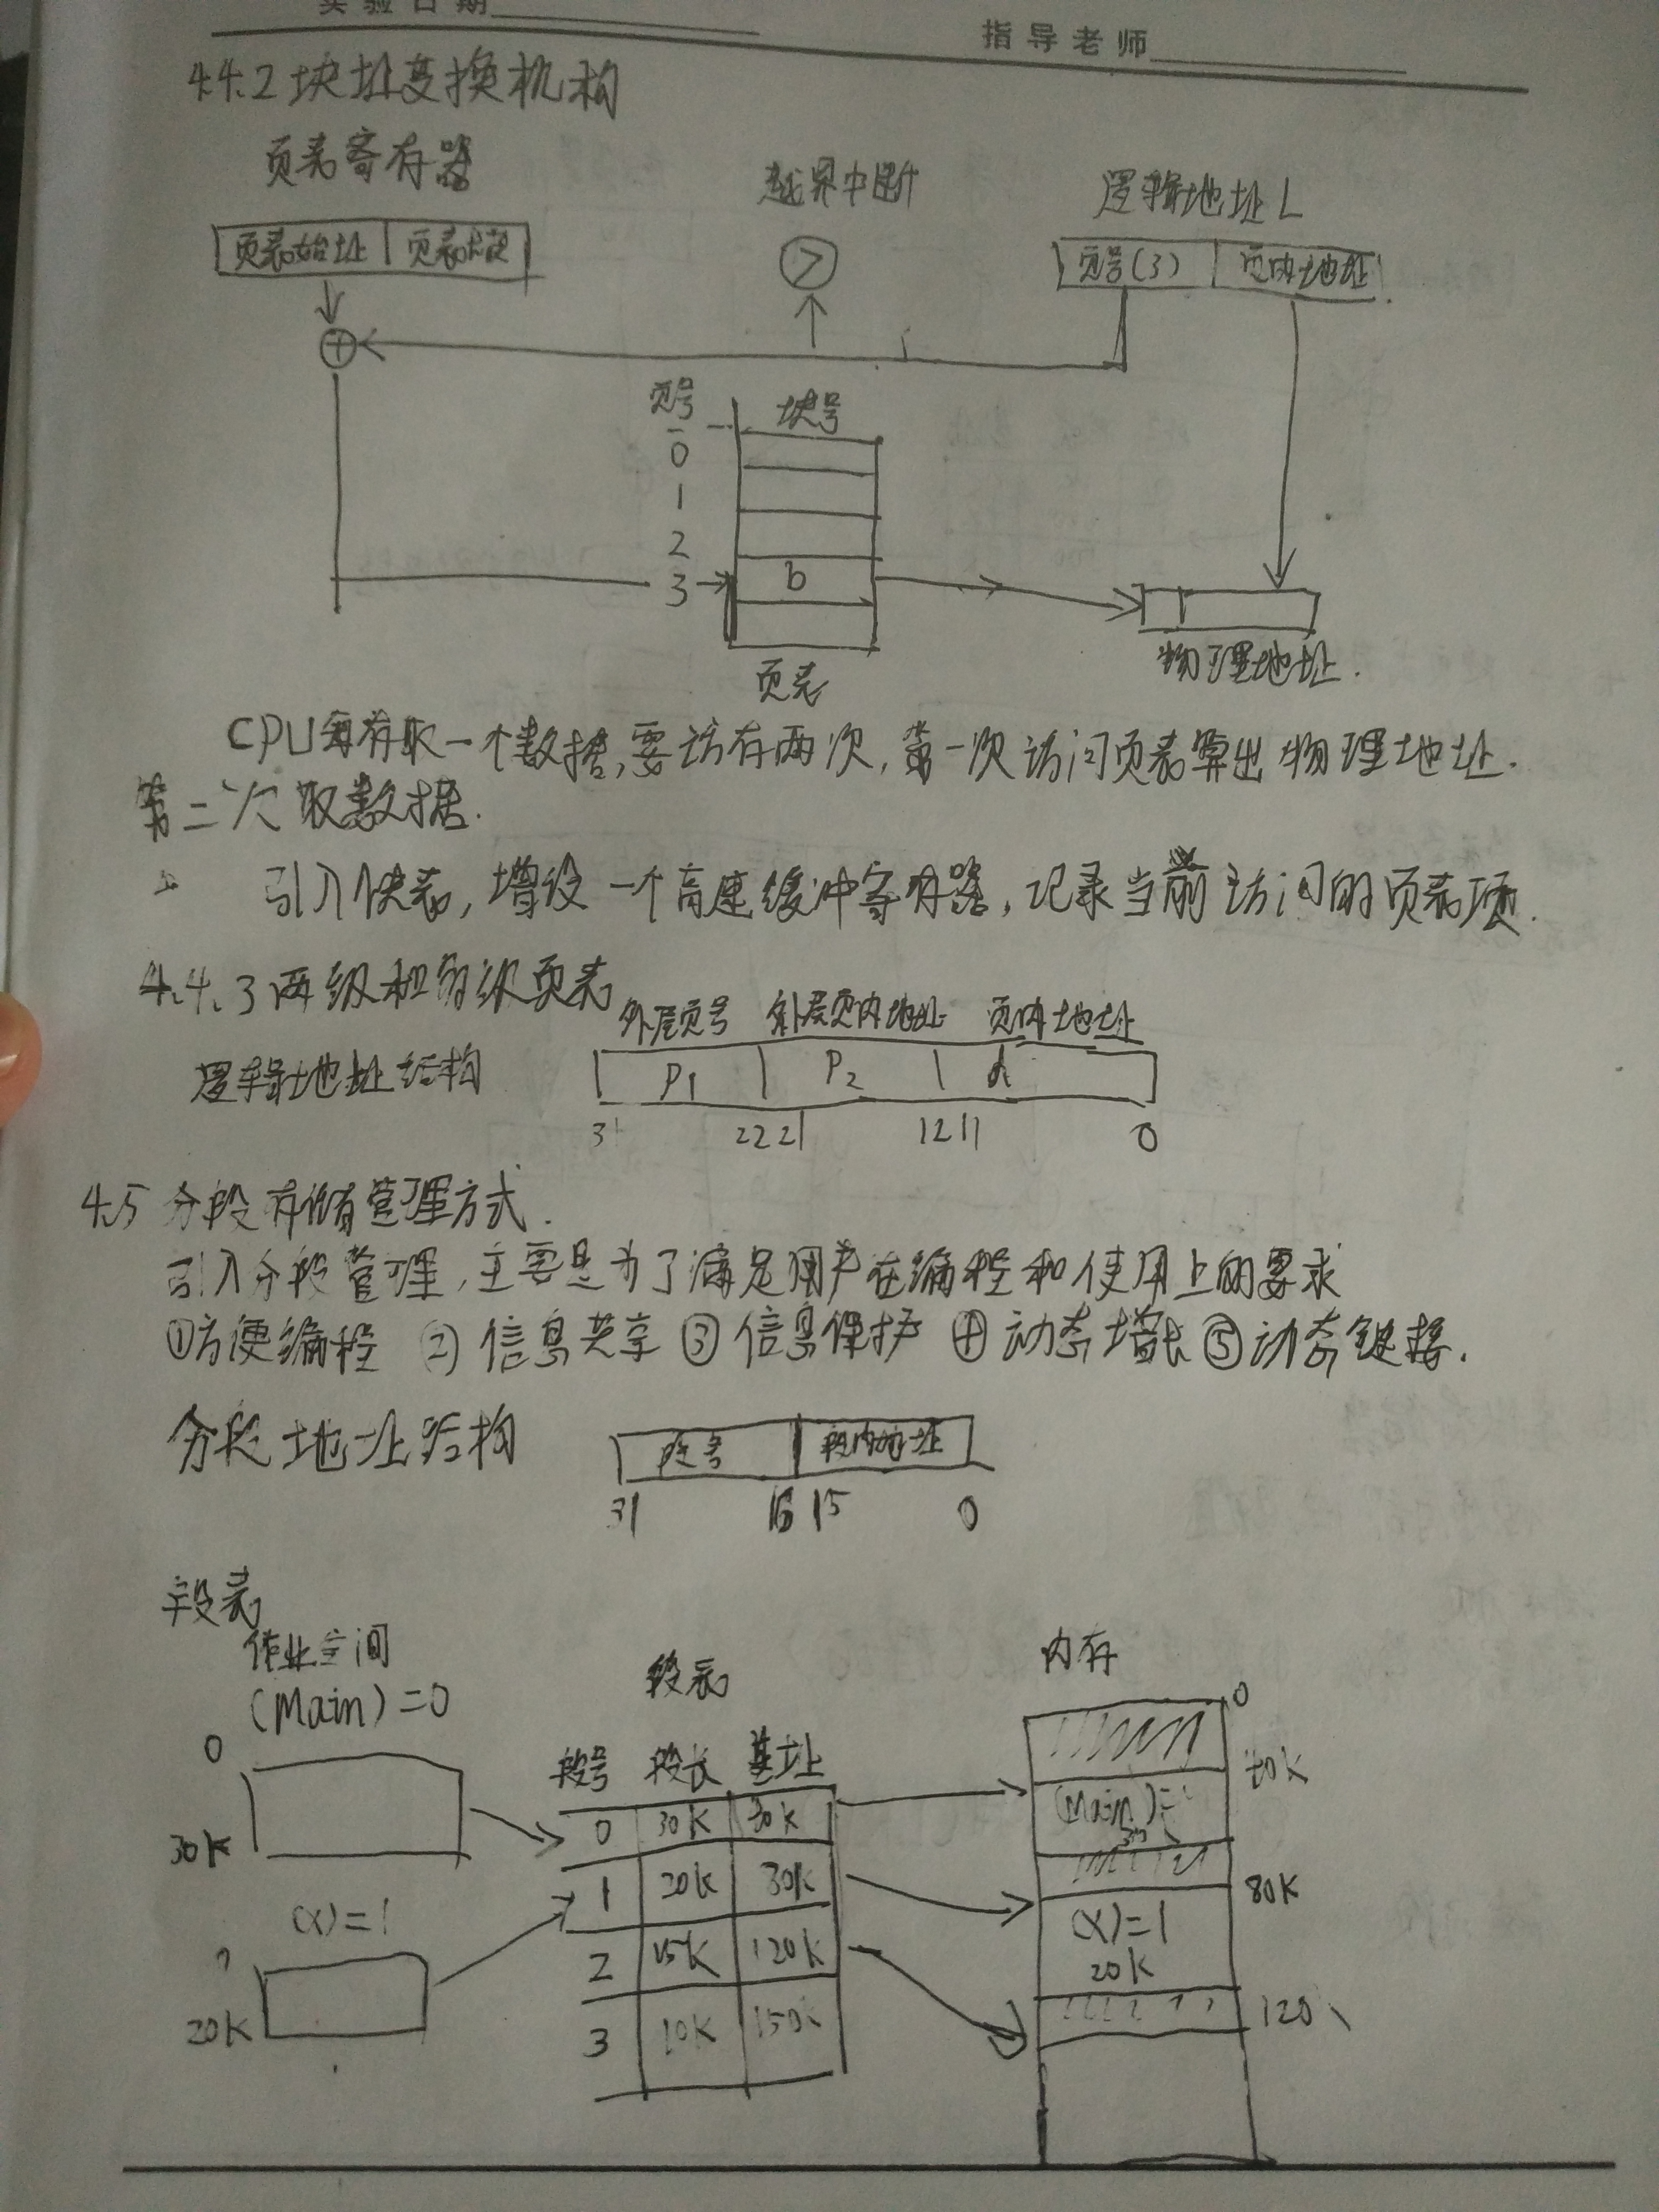 实验日期
指导老师
4.4.2 块址变换机构
页表寄存器
越界中断
逻辑地址L
页表始址 页表长度
>
页号(3) 页内地址
+
页号 块号
0
1
2
3 b
页表
物理地址.
CPU每存取一个数据,要访存两次,第一次访问页表算出物理地址.
第二次取数据.
引入快表,增设一个高速缓冲寄存器,记录当前访问的页表项.
4.4.3 两级和多级页表
外层页号 外层页内地址 页内地址
逻辑地址结构
P1 P2 d
31 22 21 12 11 0
4.5 分段存储管理方式.
引入分段管理,主要是为了满足用户在编程和使用上的要求
①方便编程 ②信息共享 ③信息保护 ④动态增长 ⑤动态链接.
分段地址结构
段号 段内地址
31 16 15 0
段表
作业空间
(Main)=0
段表
内存
0
30K
(X)=1
20K
段号 段长 基址
0 30K 30K
1 20K 30K
2 15K 120K
3 10K 150K
0
40K
(Main)=
80K
(X)=1
20K
120